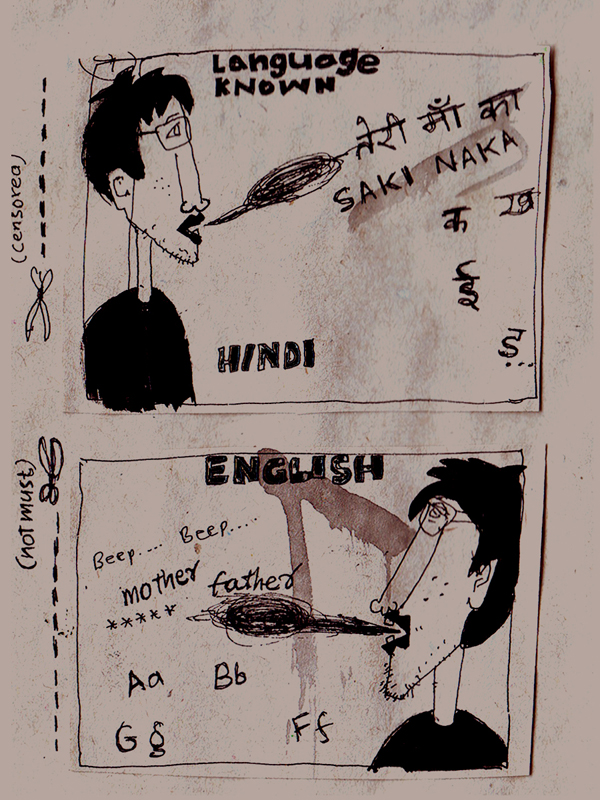 Language
KNOWN
(censored)
तेरी माँ का
SAKI NAKA
क ख
ई
ड...
HINDI
(not must)
ENGLISH
Beep.... Beep.....
mother father
*****
Aa Bb
Gg Ff